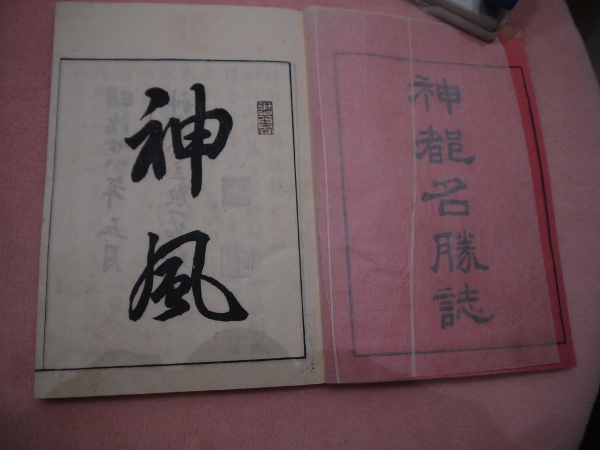 神都名勝誌
神風